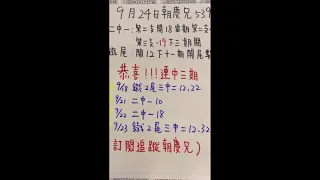 9月24日朝慶兄539
二中一:第二支開18當期第三支-
第三支-19下三期開
鐵尾:開12下十一期開尾數
恭喜!!!連中三期
9/18 鐵2尾三中=12.22
9/21 二中一10
9/22 二中一18
9/23 鐵2尾三中=12.32
訂閱追蹤朝慶兄)